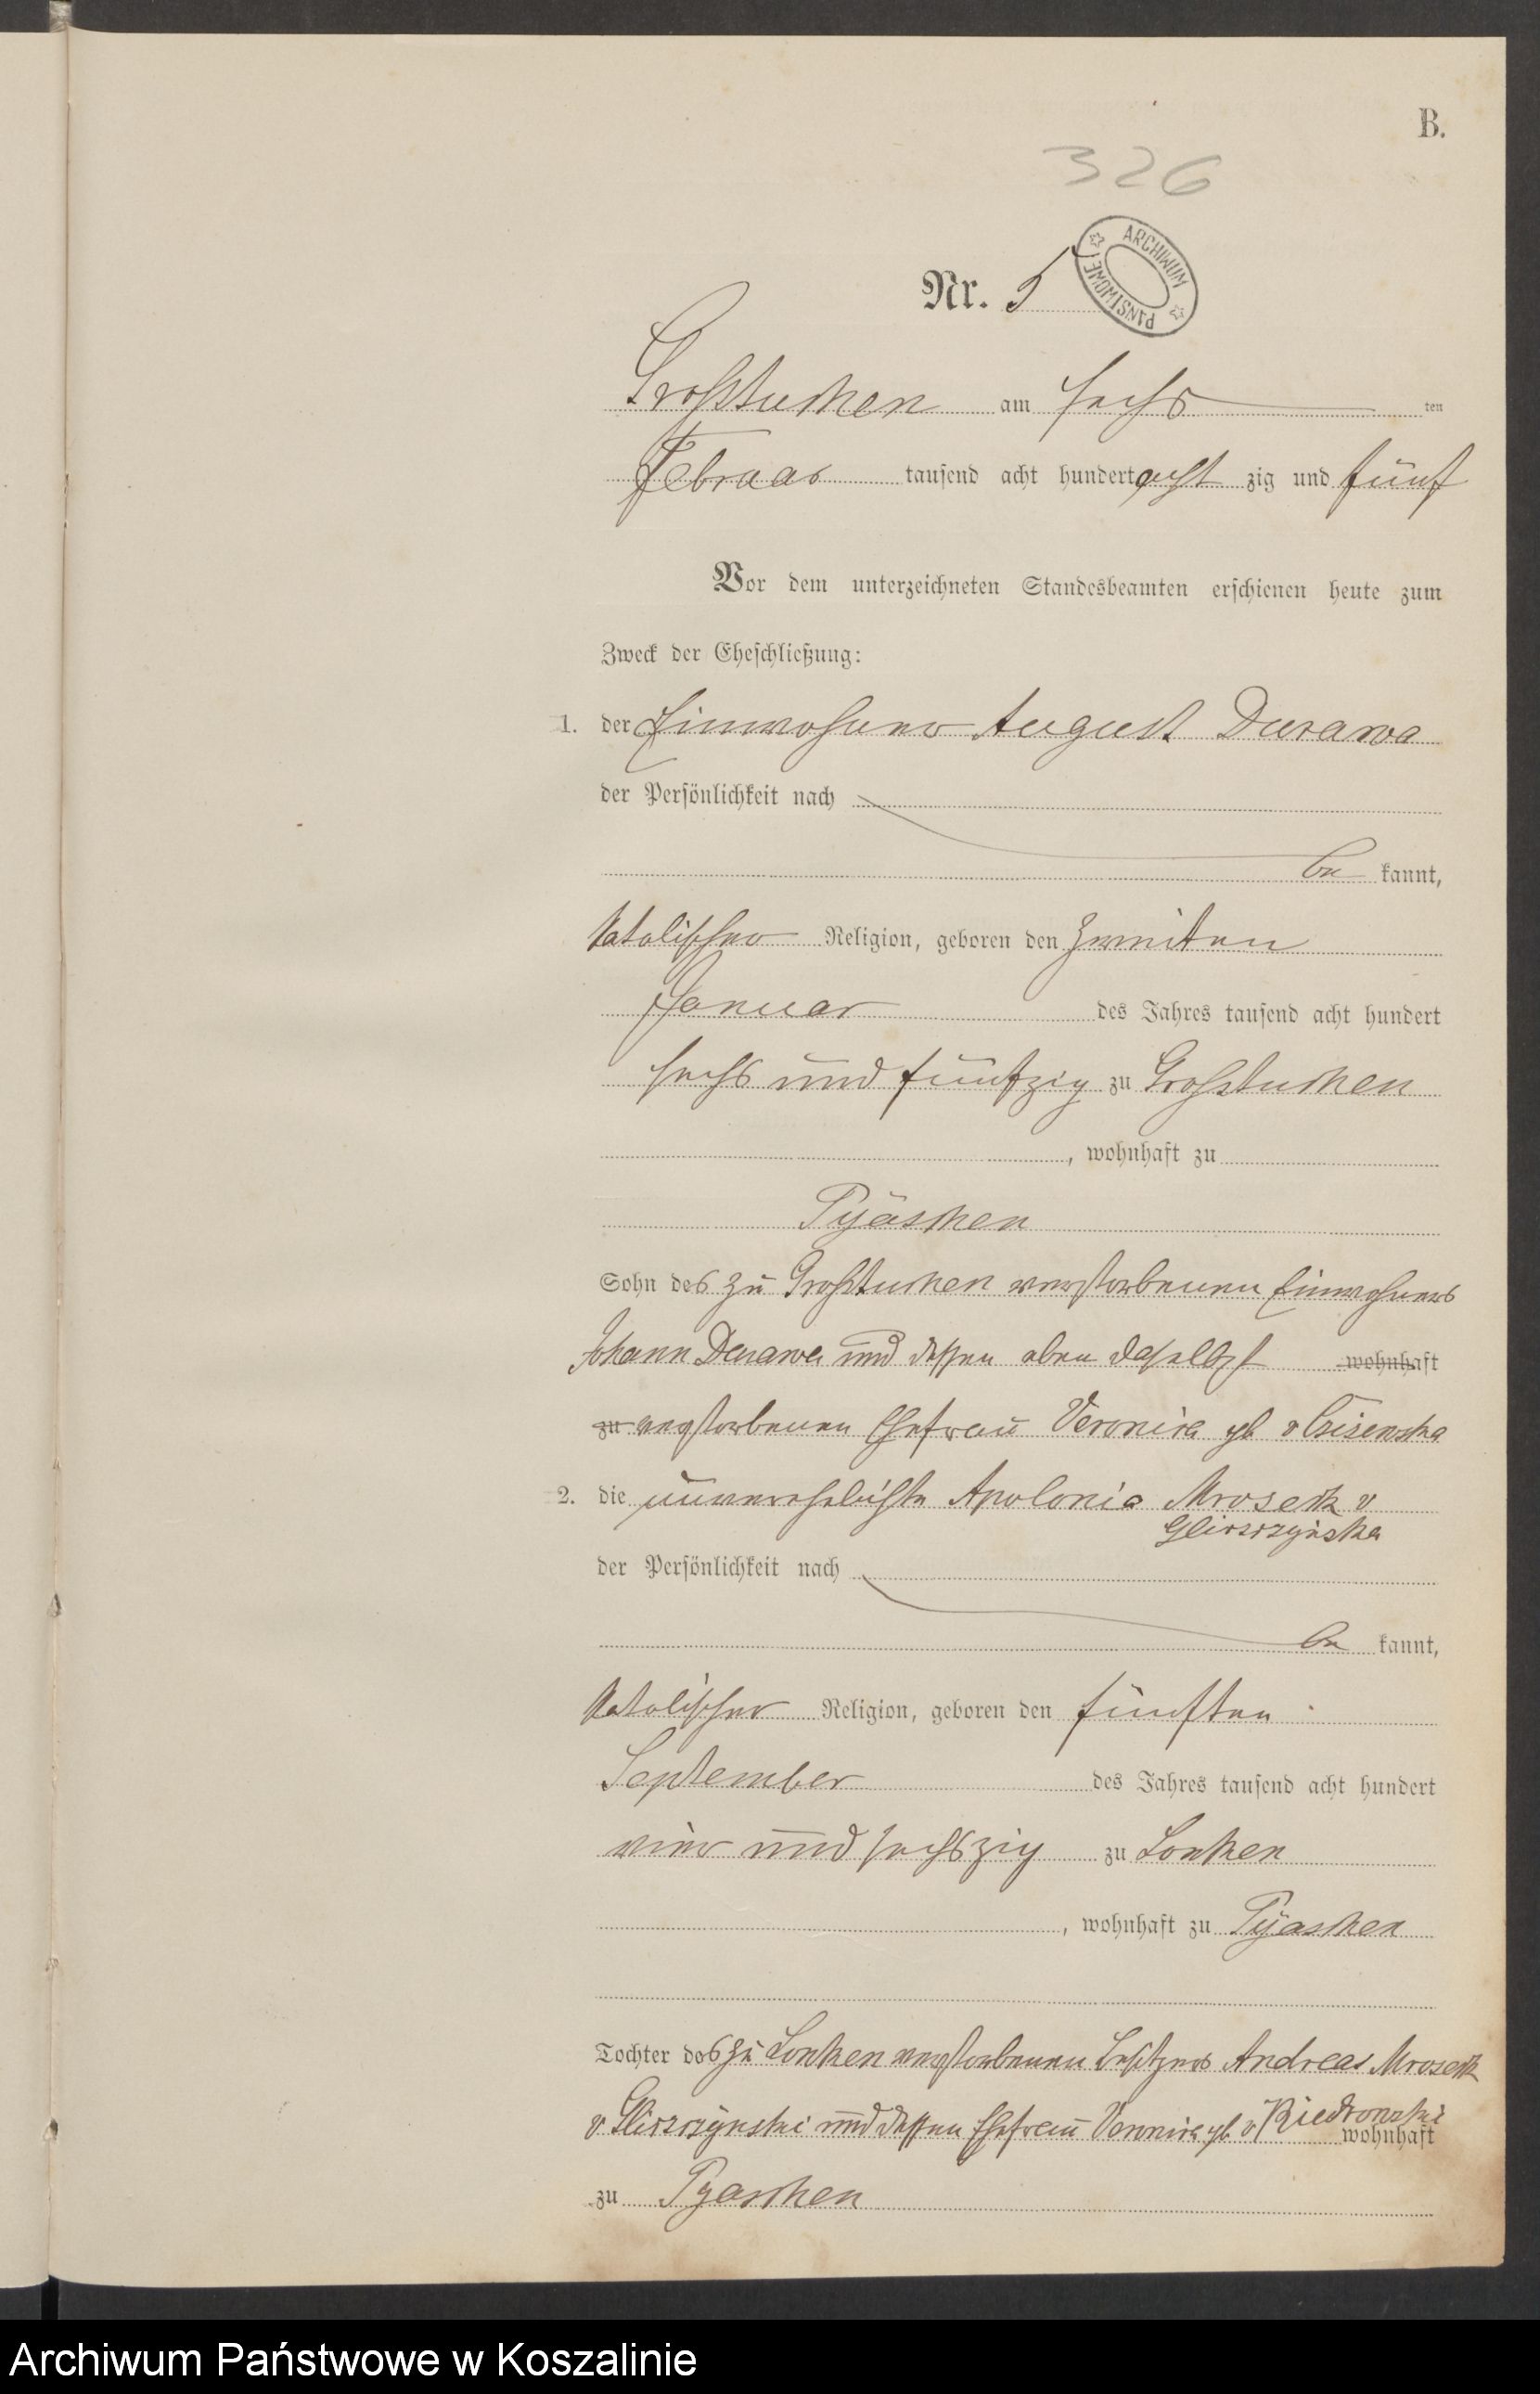 B.
326
Nr. 5
ARCHIWUM PAŃSTWOWE
Großtuchen am sechs ten
Februar tausend acht hundert acht zig und fünf
Vor dem unterzeichneten Standesbeamten erschienen heute zum
Zweck der Eheschließung:
1. der Einwohner August Durawa
der Persönlichkeit nach
be kannt,
katolischer Religion, geboren den zweiten
Januar des Jahres tausend acht hundert
sechs und fünfzig zu Großtuchen
, wohnhaft zu
Pyaschen
Sohn des zu Großtuchen verstorbenen Einwohners
Johann Durawa und dessen eben daselbst wohnhaft
zu verstorbenen Ehefrau Veronica geb v
2. die unverehelichte Apolonia Mroseck v
Gliszczynska
der Persönlichkeit nach
be kannt,
katolischer Religion, geboren den fünften
September des Jahres tausend acht hundert
vier und sechszig zu Lonken
, wohnhaft zu Pyaschen
Tochter des zu Lonken verstorbenen Besitzers Andreas Mroseck
v Gliszczynski und dessen Ehefrau Veronica geb v Kiedrowski wohnhaft
zu Pyaschen
Archiwum Państwowe w Koszalinie